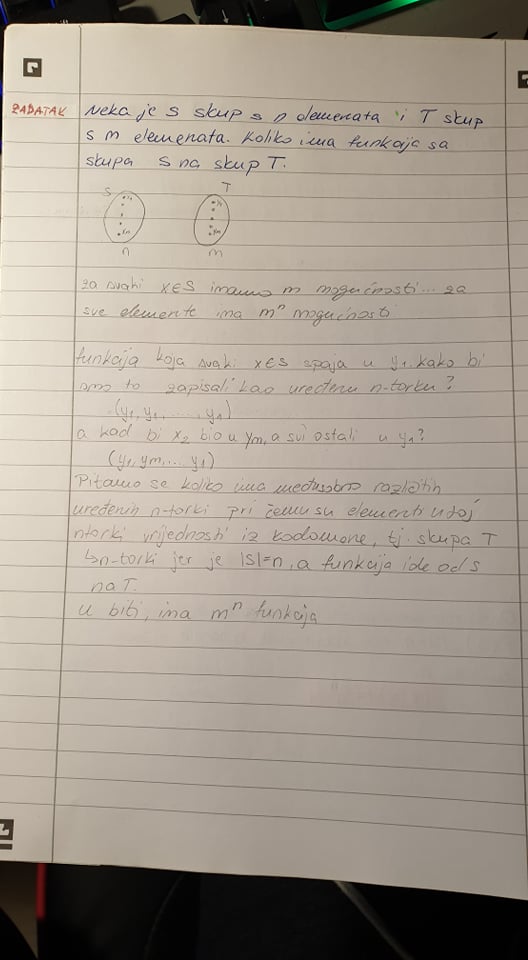 ZADATAK Neka je S skup s n elemenata i T skup
s m elemenata. Koliko ima funkcija sa
skupa S na skup T.
S T
x1 y1
ym
n m
za svaki x∈S imamo m mogućnosti... za
sve elemente ima mⁿ mogućnosti
funkcija koja svaki x∈S spaja u y1. kako bi
smo to zapisali kao uređenu n-torku?
(y1, y1, ..., y1)
a kad bi x2 bio u ym, a svi ostali u y1?
(y1, ym, ... y1)
Pitamo se koliko ima međusobno različitih
uređenih n-torki pri čemu su elementi u toj
ntorki vrijednosti iz kodomene, tj. skupa T
↳n-torki jer je |S|=n, a funkcija ide od S
na T.
u biti, ima mⁿ funkcija